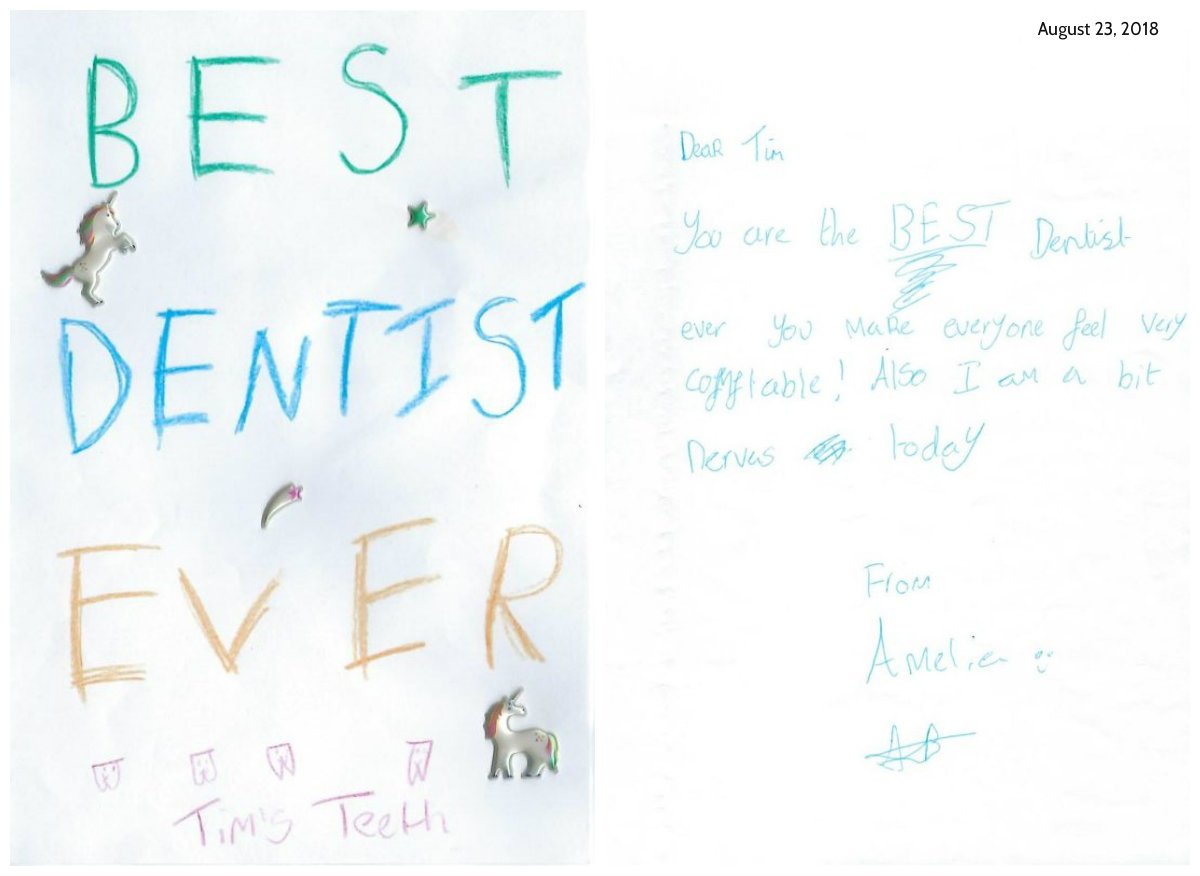 BEST
DENTIST
EVER
Tim's Teeth
August 23, 2018
Dear Tim
You are the BEST Dentist
ever You Make everyone feel very
! Also I am a bit
nervas today
From
Amelia
AB